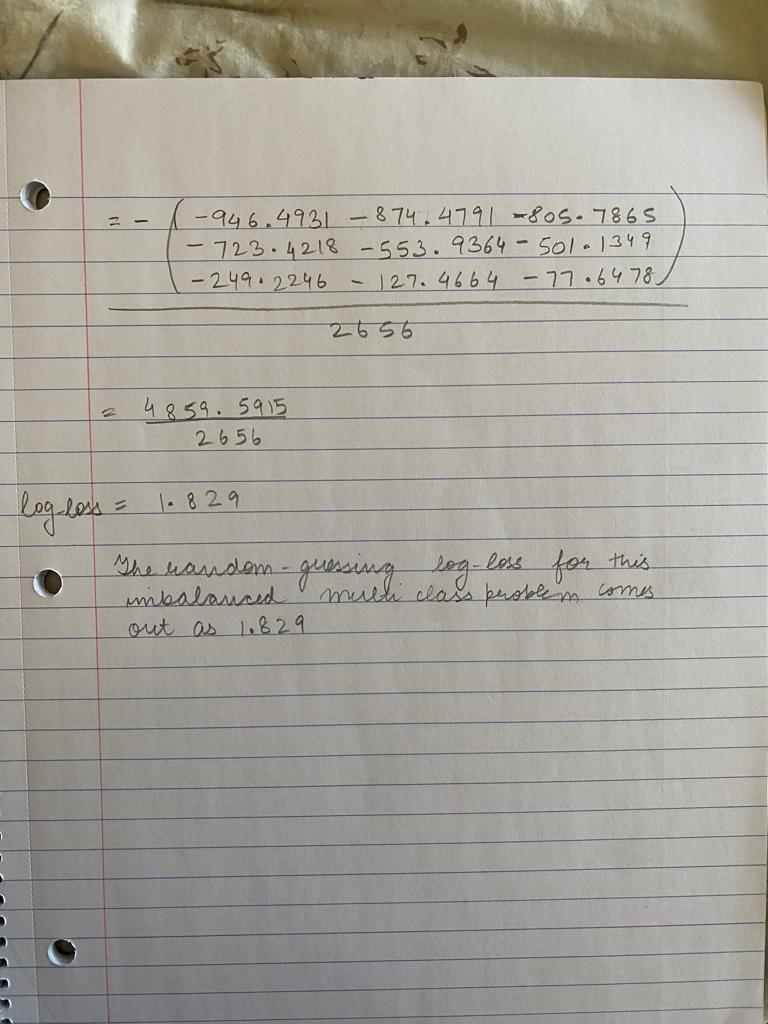 = - ( -946.4931 - 874.4791 -805.7865
- 723.4218 -553.9364 - 501.1349
-249.2246 - 127.4664 - 77.6478 )
2656
= 4859.5915
2656
log-loss = 1.829
The random-guessing log-loss for this
imbalanced multi class problem comes
out as 1.829